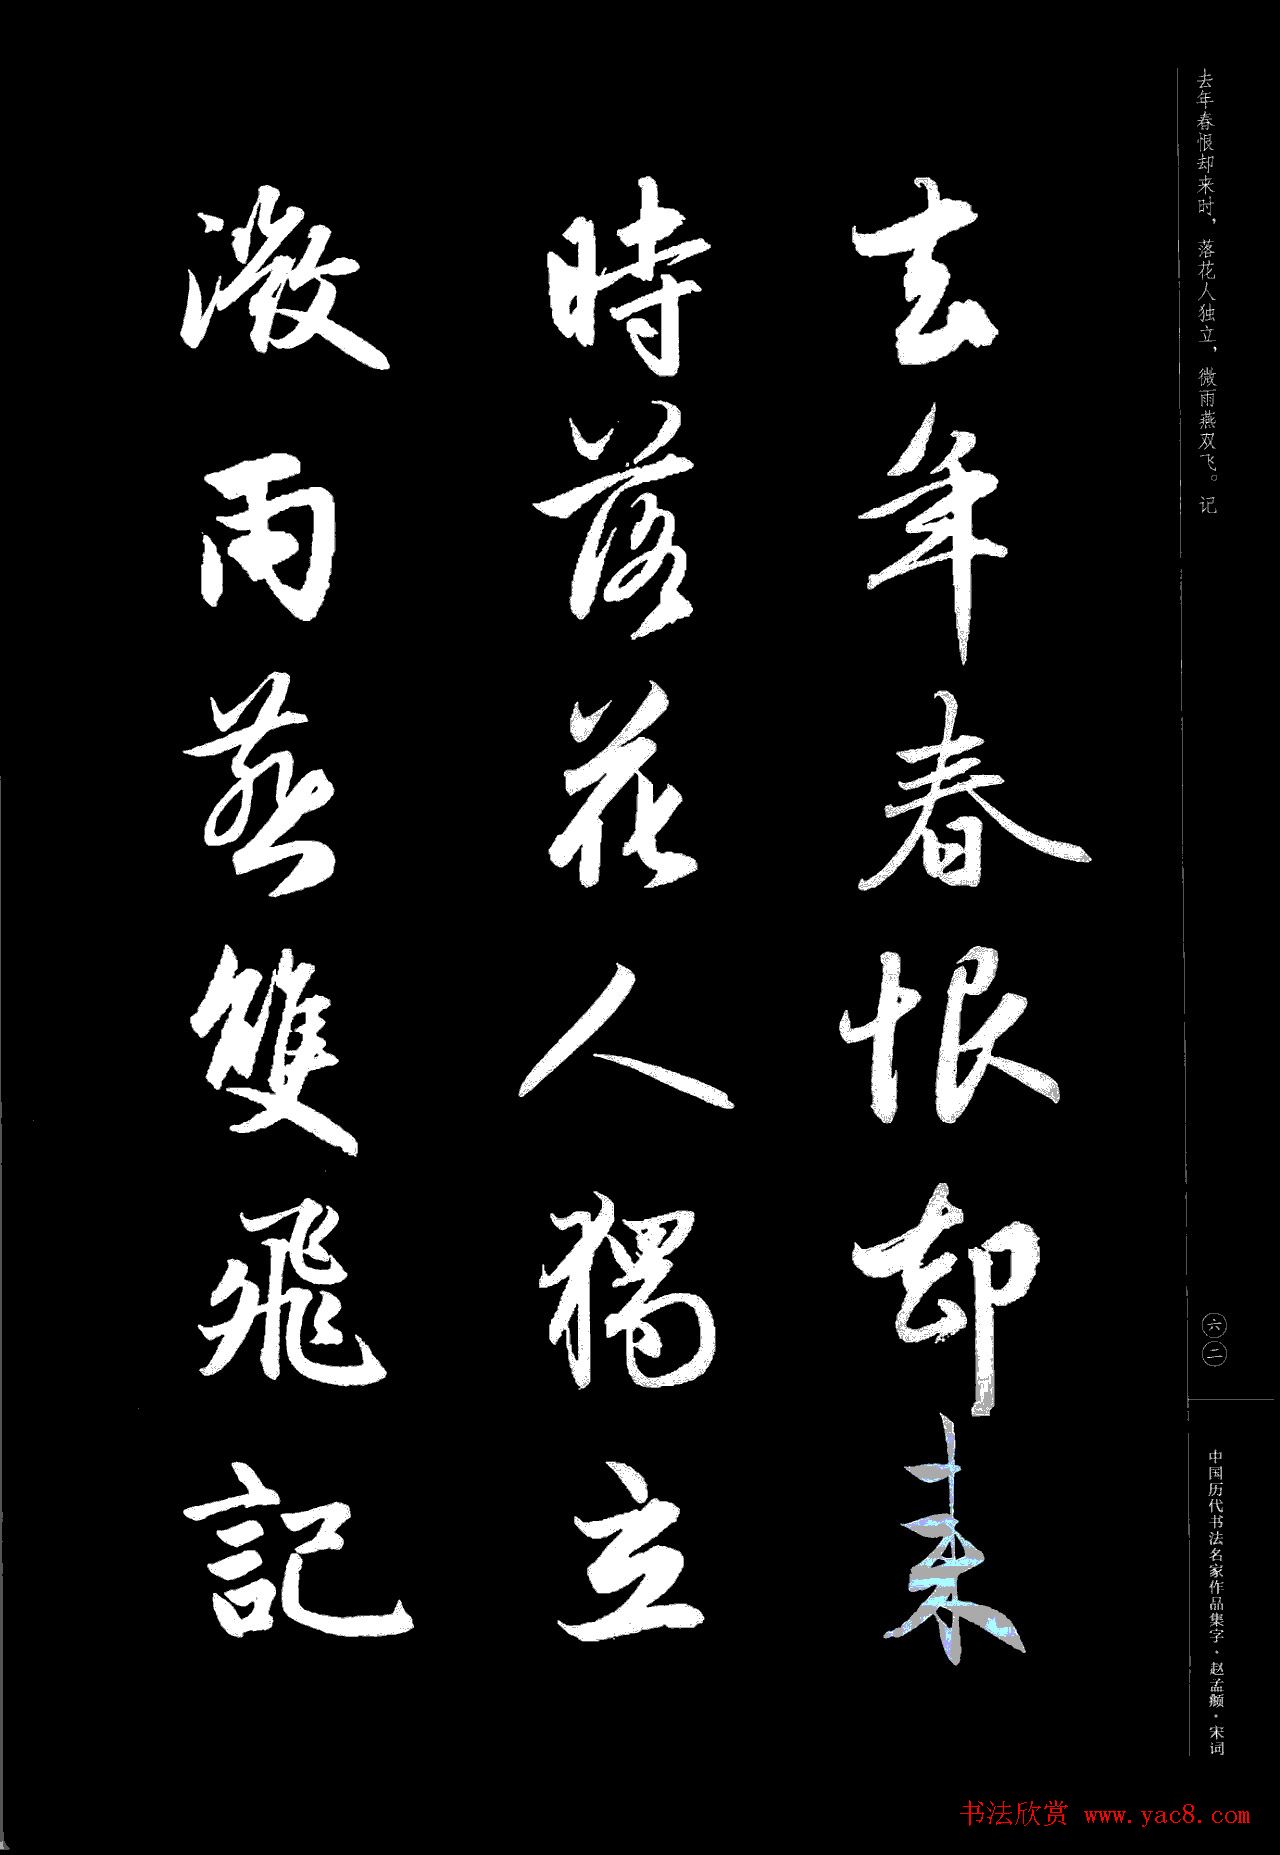 去年春恨却来时，落花人独立，微雨燕双飞。记
去年春恨却来
時落花人獨立
微雨燕雙飛記
六二
中国历代书法名家作品集字·赵孟頫·宋词
书法欣赏 www.yac8.com